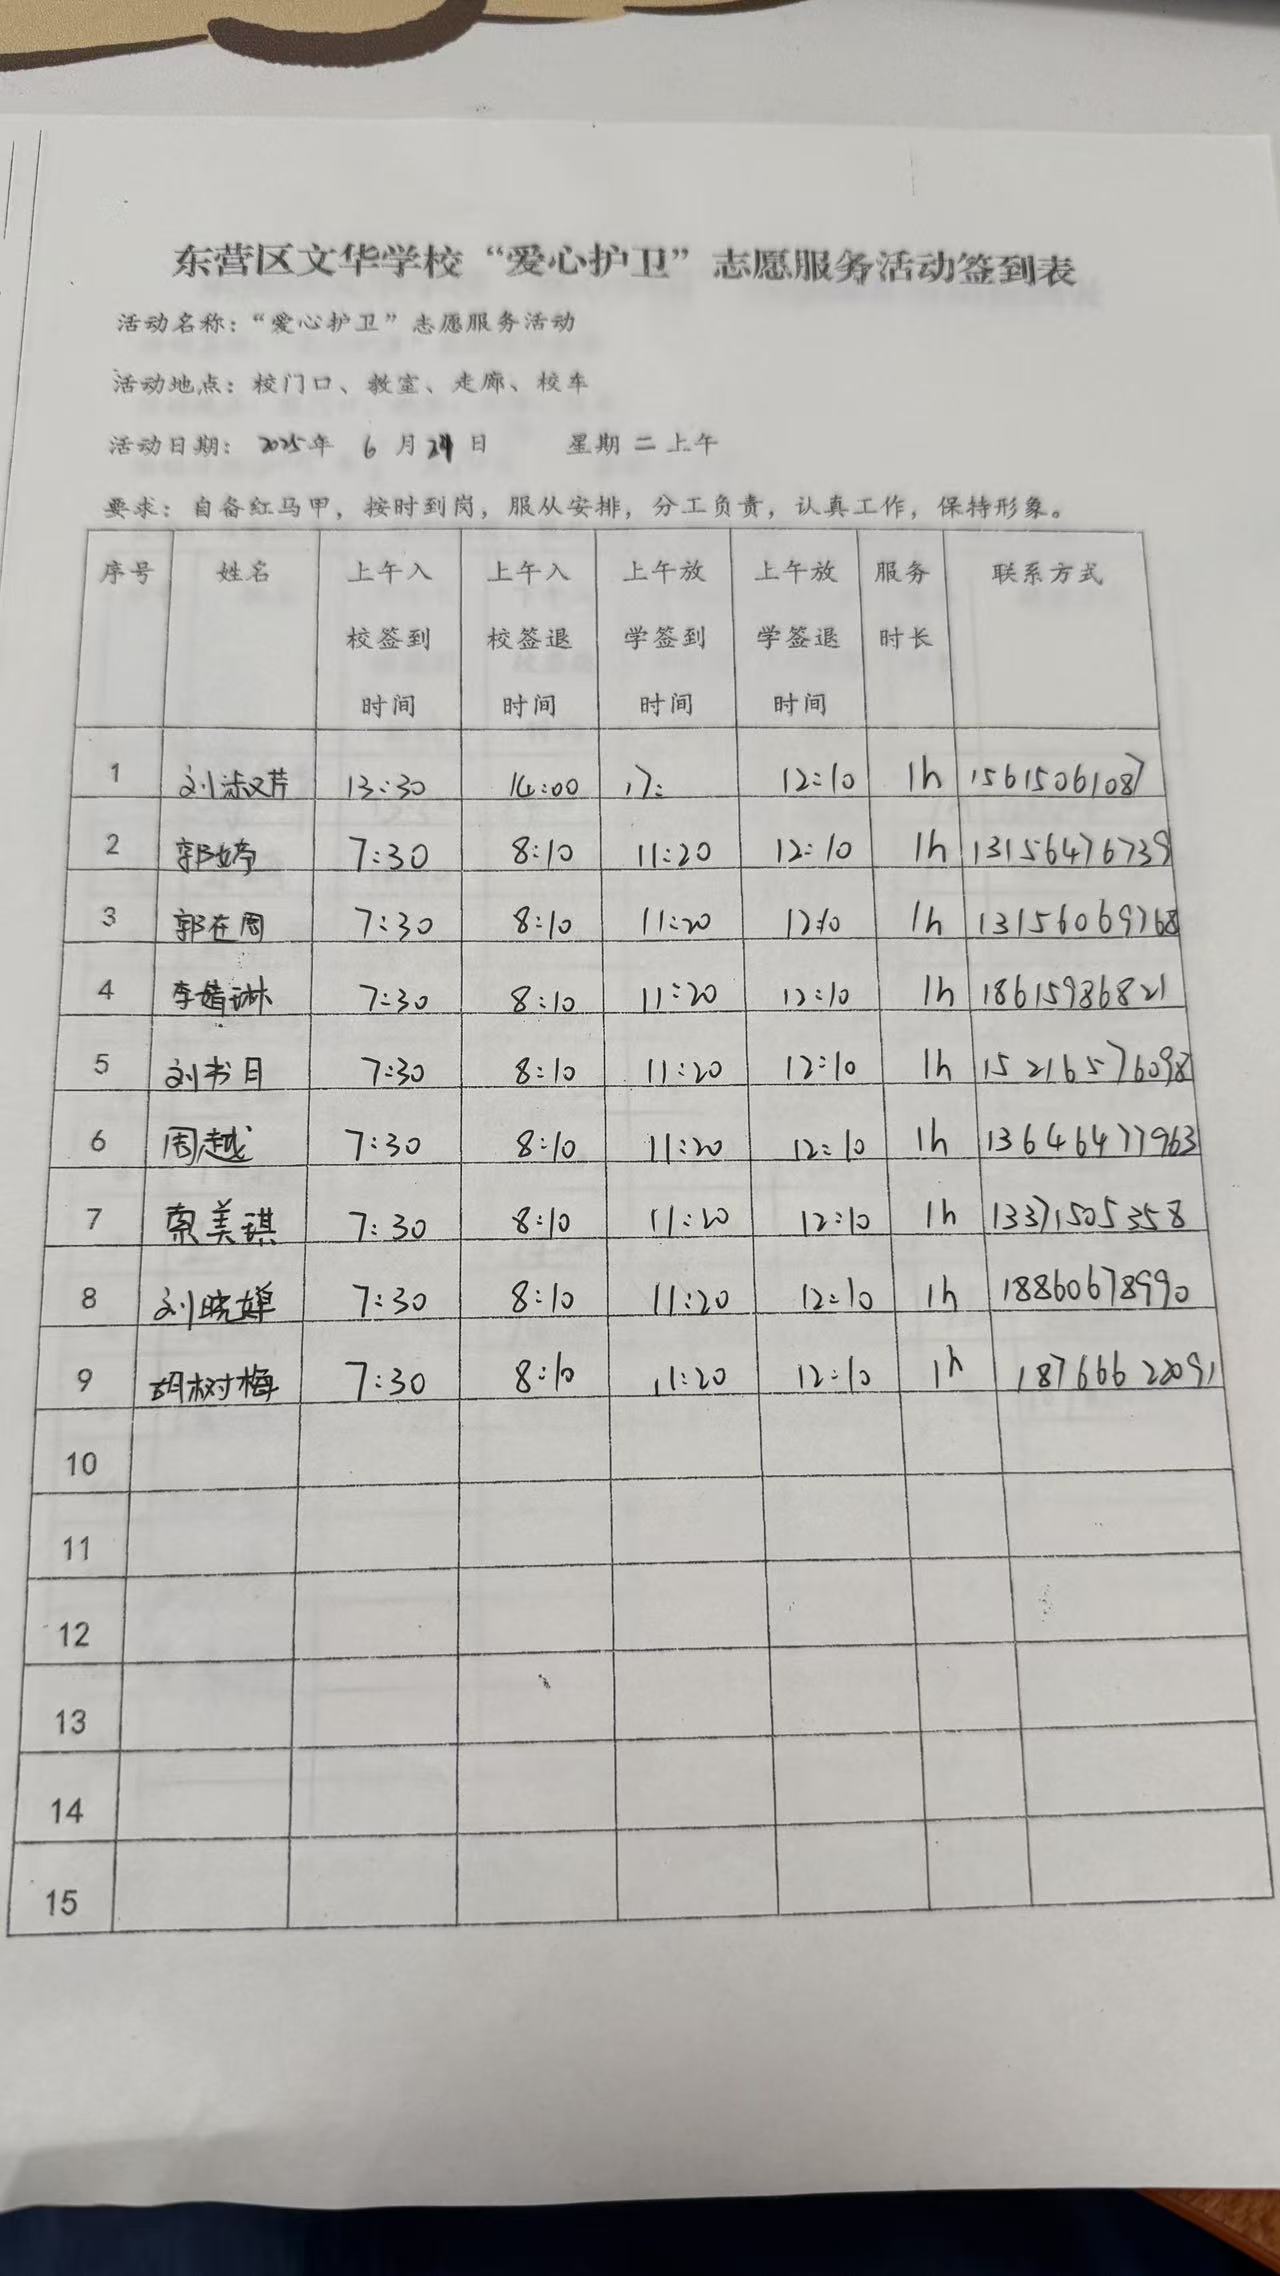 东营区文华学校“爱心护卫”志愿服务活动签到表
活动名称：“爱心护卫”志愿服务活动
活动地点：校门口、教室、走廊、校车
活动日期： 2025年 6 月 24 日 星期 二 上午
要求：自备红马甲，按时到岗，服从安排，分工负责，认真工作，保特形象。
序号 姓名 上午入校签到时间 上午入校签退时间 上午放学签到时间 上午放学签退时间 服务时长 联系方式
1 刘淑芹 13:30 14:00 17: 12:10 1h 15615061087
2 郭婷 7:30 8:10 11:20 12:10 1h 13156476739
3 郭在周 7:30 8:10 11:20 12:10 1h 13156069768
4 李婧琳 7:30 8:10 11:20 12:10 1h 18615986821
5 刘书目 7:30 8:10 11:20 12:10 1h 15216576098
6 周越 7:30 8:10 11:20 12:10 1h 13646477963
7 索美琪 7:30 8:10 11:20 12:10 1h 13371505358
8 刘晓婵 7:30 8:10 11:20 12:10 1h 18860678990
9 胡树梅 7:30 8:10 11:20 12:10 1h 18766622091
10
11
12
13
14
15